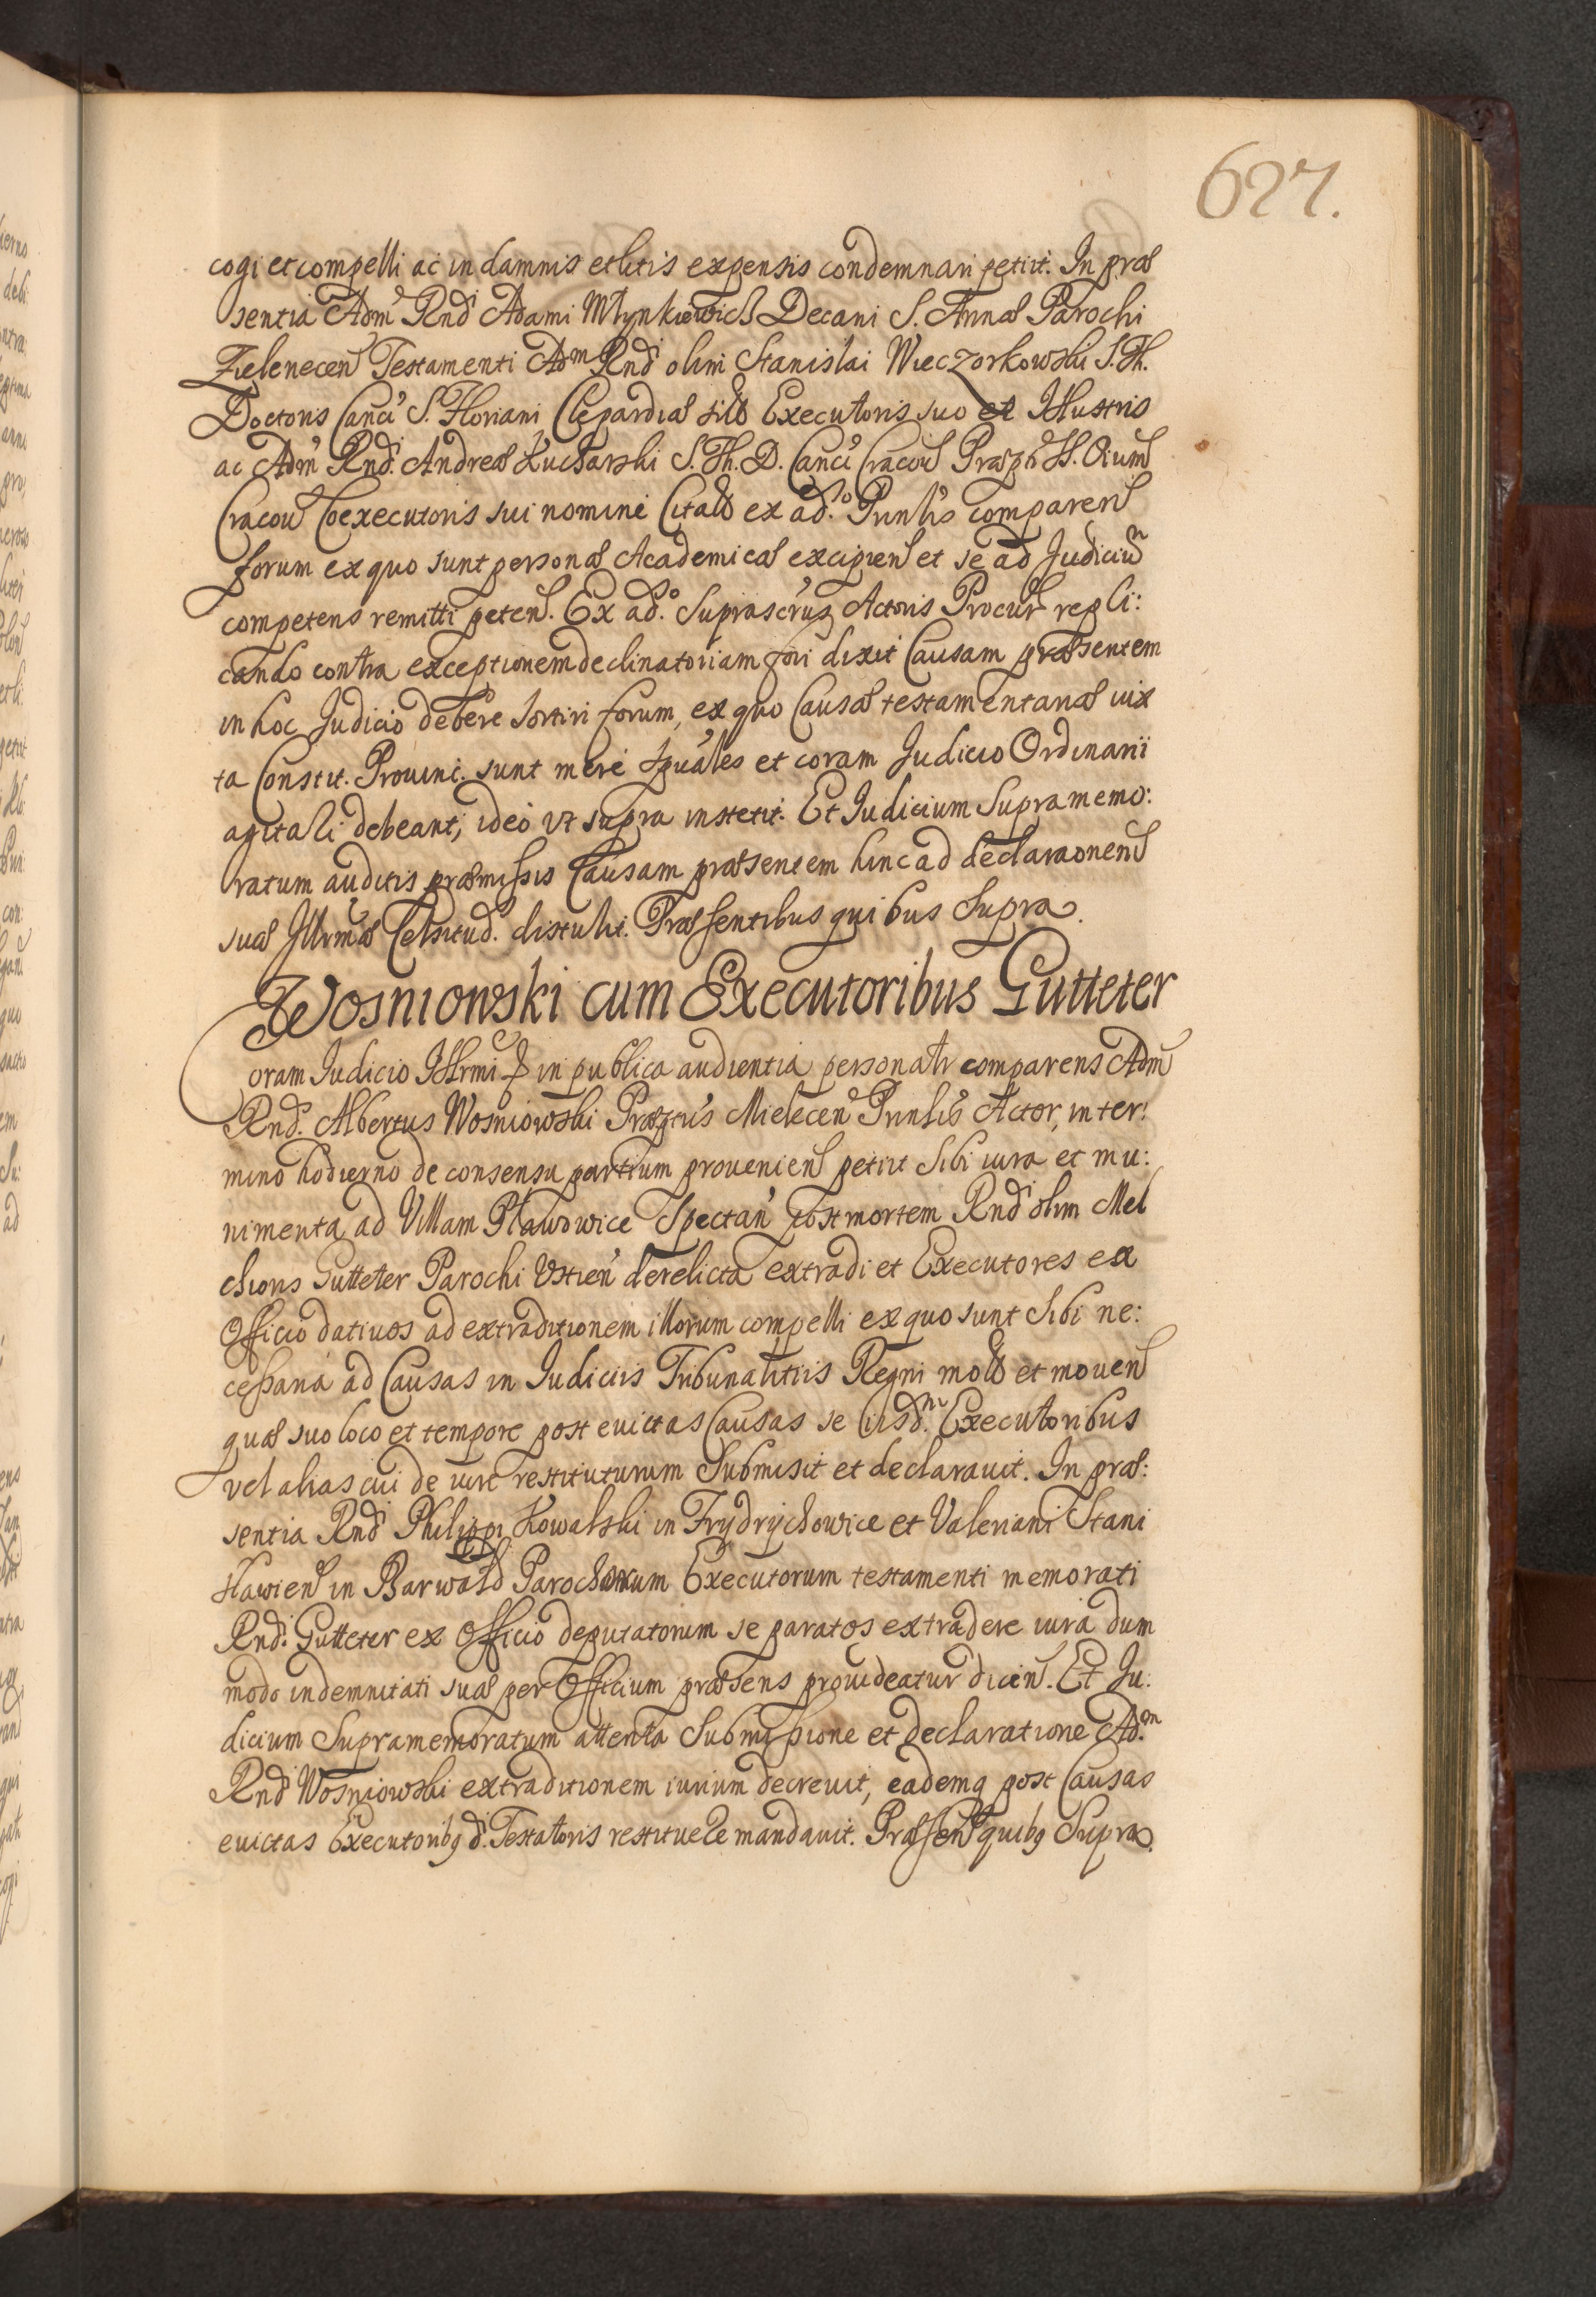 627.
cogi et compelli ac in damnis et litis expensis condemnari petiit. In præ
sentia Adm Rndi Adami Młynkiewicz Decani S. Annæ Parochi
Zielenecen Testamenti Adm Rndi olim Stanislai Wieczorkowski S. Th.
Doctoris Canci S. Floriani Clepardiæ Executoris suo et Illustris
ac Adm Rndi Andreæ Kucharski S. Th. D. Canci Cracou Præpti SS. Oium
Cracou Coexecutoris sui nomine Citati ex ado Prinlis comparen
forum ex quo sunt personæ Academicæ excipien et se ad Judicium
competens remitti peten. Ex ado. Suprascrus Actoris Procur repli:
cando contra exceptionem declinatoriam fori dixit Causam præsentem
in hoc Judicio debere sortiri forum, ex quo Causæ testamentariæ iux
ta Constit. Prouinc. sunt mere spuales et coram Judicio Ordinarii
agitari debeant, ideo vt supra institit. Et Judicium Supramemo:
ratum auditis præmissis Causam præsentem hinc ad declaraonem
suæ Illrmæ Celsitud. distulit. Præsentibus quibus Supra.
Wosniowski cum Executoribus Gutteter
Coram Judicio Illrmi & in publica audientia personalr comparens Adm
Rnd. Albertus Wosniowski Præptus Mielecen Prinlis Actor, in ter:
mino hodierno de consensu partium prouenien petiit sibi iura et mu:
nimenta ad Villam Pławowice Spectan post mortem Rndi olim Mel
chioris Gutteter Parochi Vstien derelicta extradi et Executores ex
Officio datiuos ad extraditionem illorum compelli ex quo sunt sibi ne:
cessaria ad Causas in Judiciis Tribunalitiis Regni motas et mouen
quæ suo loco et tempore post euictas Causas se iisdm. Executoribus
vel alias cui de iure restituturum Submisit et declarauit. In præ:
sentia Rndi Philippi Kowalski in Frydrychowice et Valeriani Stani
sławien in Barwałd Parochorum Executorum testamenti memorati
Rndi. Gutteter ex Officio deputatorum se paratos extradere iura dum
modo indemnitati suæ per Officium præsens prouideatur dicen. Et Ju:
dicium Supramemoratum attenta Submissione et declaratione Adm.
Rndi Wosniowski extraditionem iurium decreuit, eademq post Causas
euictas Executoribq d. Testatoris restituere mandauit. Præsen quibq Supra.